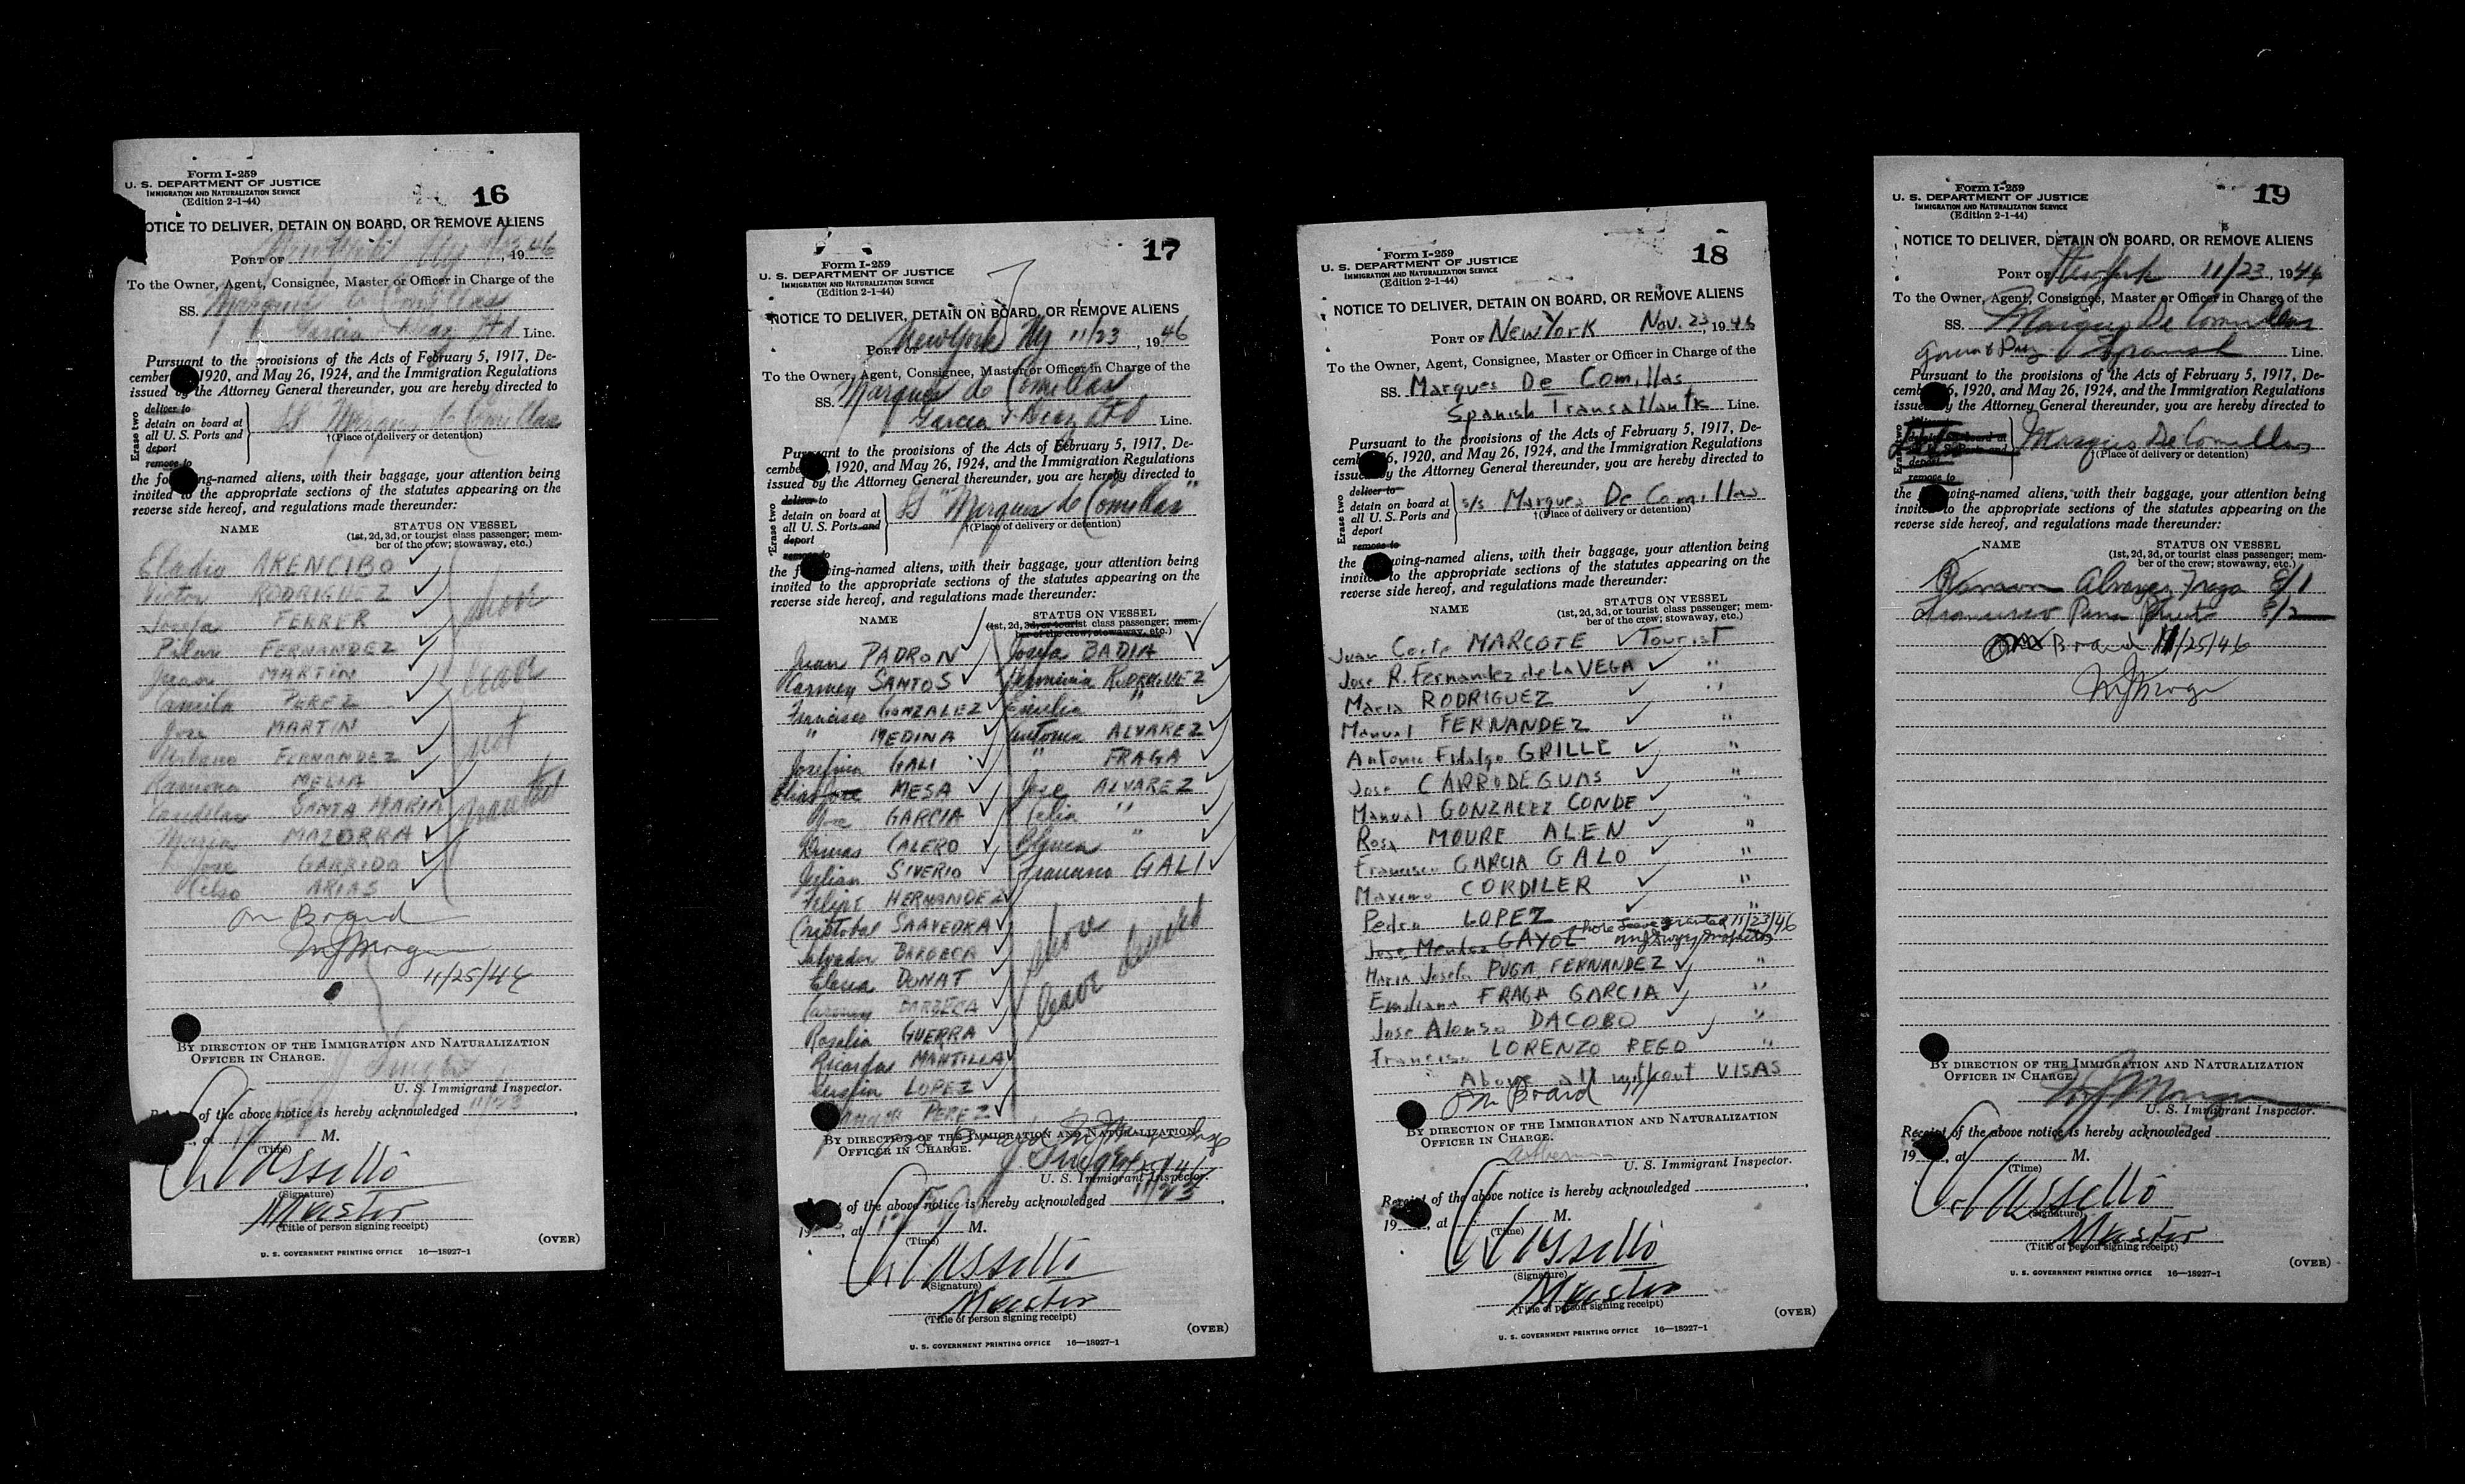 Form I-259
U. S. DEPARTMENT OF JUSTICE
IMMIGRATION AND NATURALIZATION SERVICE
(Edition 2-1-44)
16
OTICE TO DELIVER, DETAIN ON BOARD, OR REMOVE ALIENS
PORT OF New York Ny 11/23, 1946
To the Owner, Agent, Consignee, Master or Officer in Charge of the
SS. Marques de Comillas
Garcia & Diaz Ltd Line.
Pursuant to the provisions of the Acts of February 5, 1917, De-
cember 1920, and May 26, 1924, and the Immigration Regulations
issued by the Attorney General thereunder, you are hereby directed to
Erase two
deliver to
detain on board at
all U. S. Ports and
deport
remove to
SS Marques de Comillas
†(Place of delivery or detention)
the fo ng-named aliens, with their baggage, your attention being
invited to the appropriate sections of the statutes appearing on the
reverse side hereof, and regulations made thereunder:
NAME
STATUS ON VESSEL
(1st, 2d, 3d, or tourist class passenger; mem-
ber of the crew; stowaway, etc.)
Eladio ARENCIBO ✓
Victor RODRIGUEZ ✓
Josefa FERRER ✓ shore
Pilar FERNANDEZ ✓
Juan MARTIN ✓ leave
Camila PEREZ ✓
Jose MARTIN ✓ not
Urbano FERNANDEZ ✓
Ramona MELIA ✓ granted
Candelas SANTA MARIA ✓
Maria MAZORRA ✓
Jose GARRIDO ✓
Celso ARIAS ✓
On Board
11/25/46
BY DIRECTION OF THE IMMIGRATION AND NATURALIZATION
OFFICER IN CHARGE.
U. S. Immigrant Inspector.
of the above notice is hereby acknowledged 11/23,
, at M.
(Time)
(Signature)
Master
(Title of person signing receipt)
(OVER)
U. S. GOVERNMENT PRINTING OFFICE 16—18927-1
Form I-259
U. S. DEPARTMENT OF JUSTICE
IMMIGRATION AND NATURALIZATION SERVICE
(Edition 2-1-44)
17
NOTICE TO DELIVER, DETAIN ON BOARD, OR REMOVE ALIENS
PORT OF New York Ny 11/23, 1946
To the Owner, Agent, Consignee, Master or Officer in Charge of the
SS. Marques de Comillas
Garcia & Diaz Ltd Line.
Pursuant to the provisions of the Acts of February 5, 1917, De-
cembe , 1920, and May 26, 1924, and the Immigration Regulations
issued by the Attorney General thereunder, you are hereby directed to
Erase two
deliver to
detain on board at
all U. S. Ports and
deport
remove to
SS "Marques de Comillas"
†(Place of delivery or detention)
the f wing-named aliens, with their baggage, your attention being
invited to the appropriate sections of the statutes appearing on the
reverse side hereof, and regulations made thereunder:
NAME
STATUS ON VESSEL
(1st, 2d, 3d, or tourist class passenger; mem-
ber of the crew; stowaway, etc.)
Juan PADRON ✓ Josefa BADIA ✓
Carmen SANTOS ✓ Herminia RODRIGUEZ ✓
Francisco GONZALEZ ✓ Emilia " ✓
" MEDINA ✓ Antonia ALVAREZ ✓
Josefina GALI ✓ " FRAGA ✓
Elias Jose MESA ✓ Jose ALVAREZ ✓
Jose GARCIA ✓ Celia " ✓
Dimas CALERO ✓ Blanca " ✓
Julian SIVERIO ✓ Francisco GALI ✓
Felipe HERNANDEZ ✓
Cristobal SAAVEDRA ✓
Salvador BARBECA ✓
Elena DONAT ✓
Carmen BARBECA ✓
Rosalia GUERRA ✓
Ricardo MANTILLA ✓
LOPEZ ✓
PEREZ ✓
shore leave denied
BY DIRECTION OF THE IMMIGRATION AND NATURALIZATION
OFFICER IN CHARGE.
U. S. Immigrant Inspector.
of the above notice is hereby acknowledged 11/23,
19 , at M.
(Time)
(Signature)
Master
(Title of person signing receipt)
(OVER)
U. S. GOVERNMENT PRINTING OFFICE 16—18927-1
Form I-259
U. S. DEPARTMENT OF JUSTICE
IMMIGRATION AND NATURALIZATION SERVICE
(Edition 2-1-44)
18
NOTICE TO DELIVER, DETAIN ON BOARD, OR REMOVE ALIENS
PORT OF New York Nov. 23, 1946
To the Owner, Agent, Consignee, Master or Officer in Charge of the
SS. Marques De Comillas
Spanish Transatlantk Line.
Pursuant to the provisions of the Acts of February 5, 1917, De-
cemb 6, 1920, and May 26, 1924, and the Immigration Regulations
issued by the Attorney General thereunder, you are hereby directed to
Erase two
deliver to
detain on board at
all U. S. Ports and
deport
remove to
s/s Marques De Comillas
†(Place of delivery or detention)
the wing-named aliens, with their baggage, your attention being
invited to the appropriate sections of the statutes appearing on the
reverse side hereof, and regulations made thereunder:
NAME
STATUS ON VESSEL
(1st, 2d, 3d, or tourist class passenger; mem-
ber of the crew; stowaway, etc.)
Juan Coto MARCOTE ✓ Tourist
Jose R. Fernandez de La VEGA ✓ "
Maria RODRIGUEZ ✓ "
Manual FERNANDEZ ✓ "
Antonio Fidalgo GRILLE ✓ "
Jose CARRODEGUAS ✓ "
Manual GONZALEZ CONDE ✓ "
Rosa MOURE ALEN ✓ "
Francisco GARCIA GALO ✓ "
Maximo CORDILER ✓ "
Pedro LOPEZ ✓ "
Jose Mendez GAYOL shore leave granted 11/23/46
Maria Josefa PUGA FERNANDEZ ✓ "
Emiliana FRAGA GARCIA ✓ "
Jose Alonso DACOBO ✓ "
Francisco LORENZO REGO ✓ "
Above all without VISAS
On Board
BY DIRECTION OF THE IMMIGRATION AND NATURALIZATION
OFFICER IN CHARGE.
U. S. Immigrant Inspector.
Receipt of the above notice is hereby acknowledged ,
19 , at M.
(Time)
(Signature)
Master
(Title of person signing receipt)
(OVER)
U. S. GOVERNMENT PRINTING OFFICE 16—18927-1
Form I-259
U. S. DEPARTMENT OF JUSTICE
IMMIGRATION AND NATURALIZATION SERVICE
(Edition 2-1-44)
19
NOTICE TO DELIVER, DETAIN ON BOARD, OR REMOVE ALIENS
PORT OF New York 11/23, 1946
To the Owner, Agent, Consignee, Master or Officer in Charge of the
SS. Marques De Comillas
Garcia & Diaz Spanish Line.
Pursuant to the provisions of the Acts of February 5, 1917, De-
cemb 6, 1920, and May 26, 1924, and the Immigration Regulations
issue y the Attorney General thereunder, you are hereby directed to
Erase two
deport
remove to
Marques De Comillas
†(Place of delivery or detention)
the wing-named aliens, with their baggage, your attention being
invited to the appropriate sections of the statutes appearing on the
reverse side hereof, and regulations made thereunder:
NAME
STATUS ON VESSEL
(1st, 2d, 3d, or tourist class passenger; mem-
ber of the crew; stowaway, etc.)
Ramon Alvarez Fraga 8/1
Francisco Pena 8/2
On Board 11/25/46
BY DIRECTION OF THE IMMIGRATION AND NATURALIZATION
OFFICER IN CHARGE.
U. S. Immigrant Inspector.
Receipt of the above notice is hereby acknowledged
19 , at M.
(Time)
(Signature)
Master
(Title of person signing receipt)
(OVER)
U. S. GOVERNMENT PRINTING OFFICE 16—18927-1